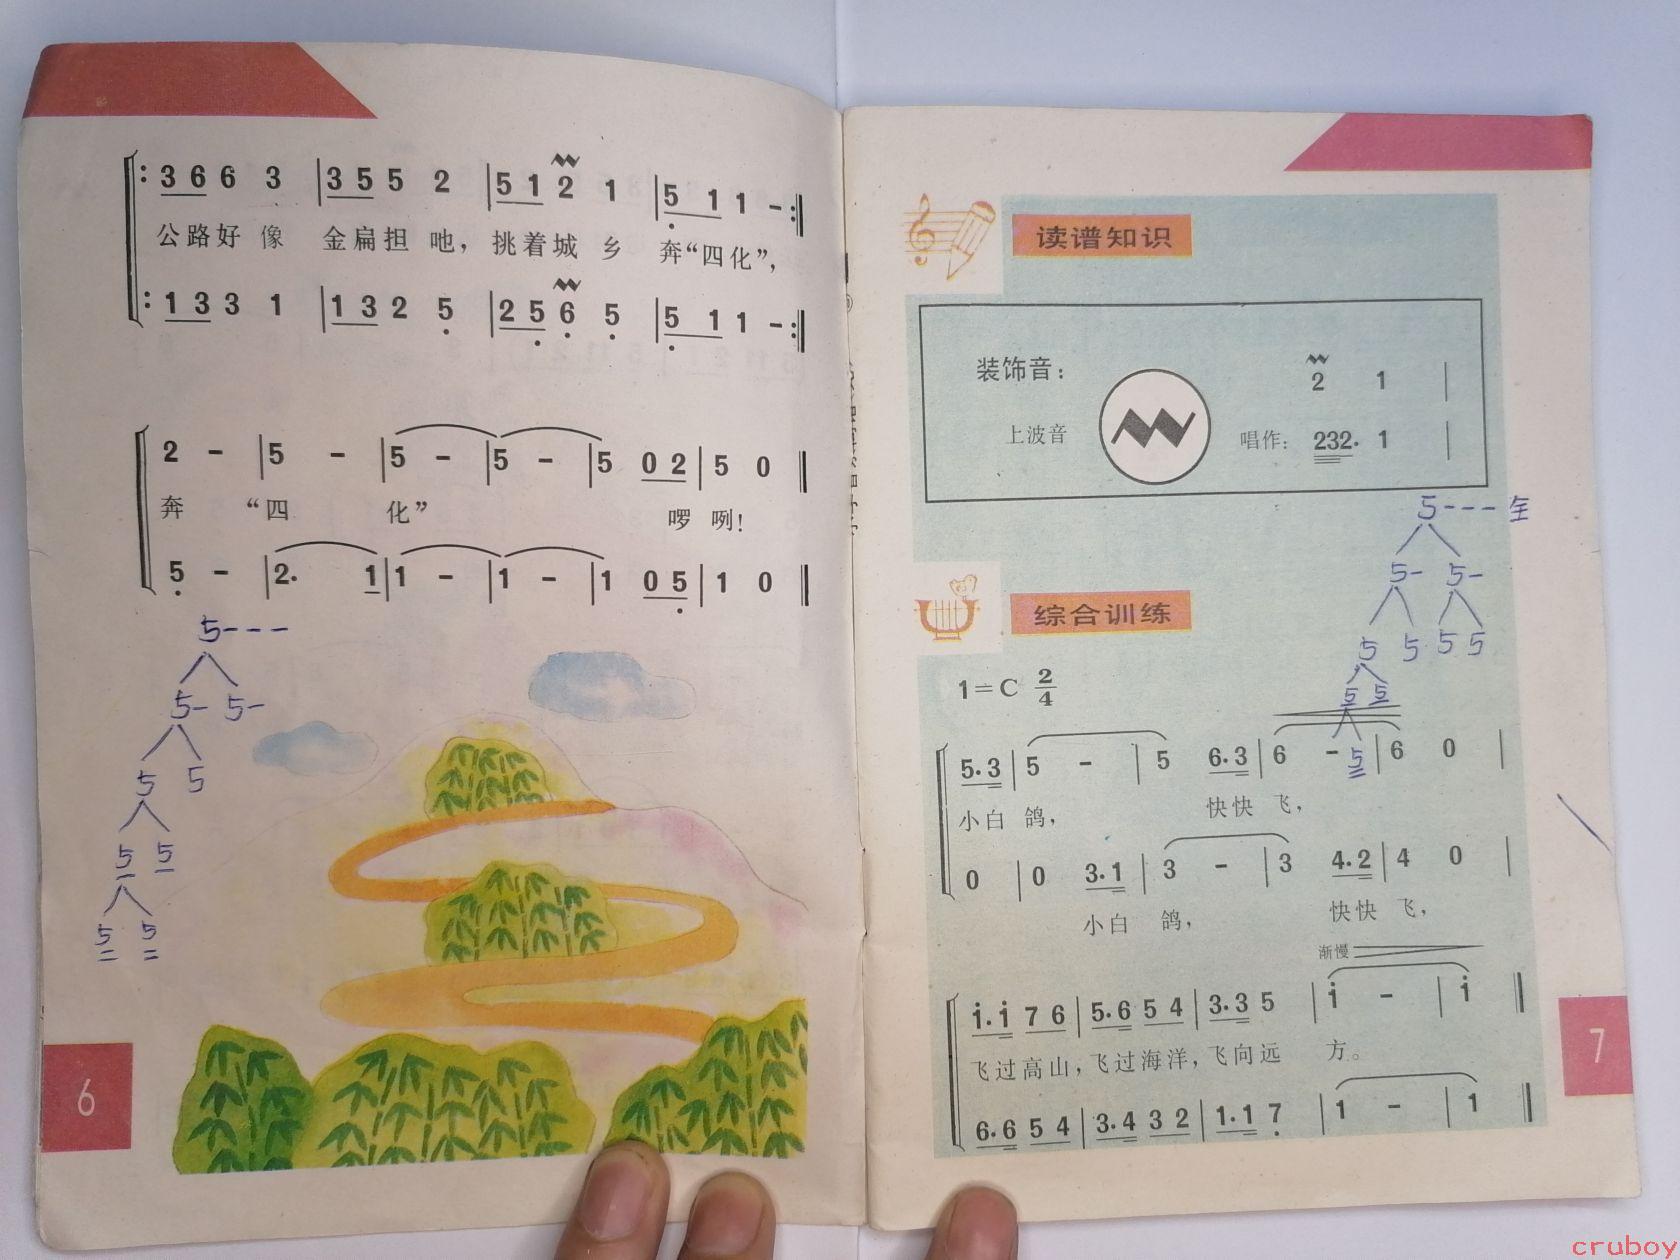 3 6 6 3 | 3 5 5 2 | 5 1 2 1 | 5 1 1 -
公路好像 金扁担吔，挑着城乡 奔“四化”，
1 3 3 1 | 1 3 2 5 | 2 5 6 5 | 5 1 1 -
2 - | 5 - | 5 - | 5 - | 5 0 2 | 5 0
奔 “四 化” 啰咧！
5 - | 2. 1 | 1 - | 1 - | 1 0 5 | 1 0
5 - - -
5 - 5 -
5 5
5 5
5 5
6
读谱知识
装饰音： 2 1 |
上波音 唱作：232. 1 |
5 - - - 全
5 - 5 -
5 5 5 5
5 5
5
综合训练
1=C 2/4
5.3 | 5 - | 5 6.3 | 6 - | 6 0 |
小白鸽， 快快飞，
0 | 0 3.1 | 3 - | 3 4.2 | 4 0 |
小白鸽， 快快飞，
渐慢
i.i 7 6 | 5.6 5 4 | 3.3 5 | i - | i
飞过高山，飞过海洋，飞向远 方。
6.6 5 4 | 3.4 3 2 | 1.1 7 | 1 - | 1
7
cruboy